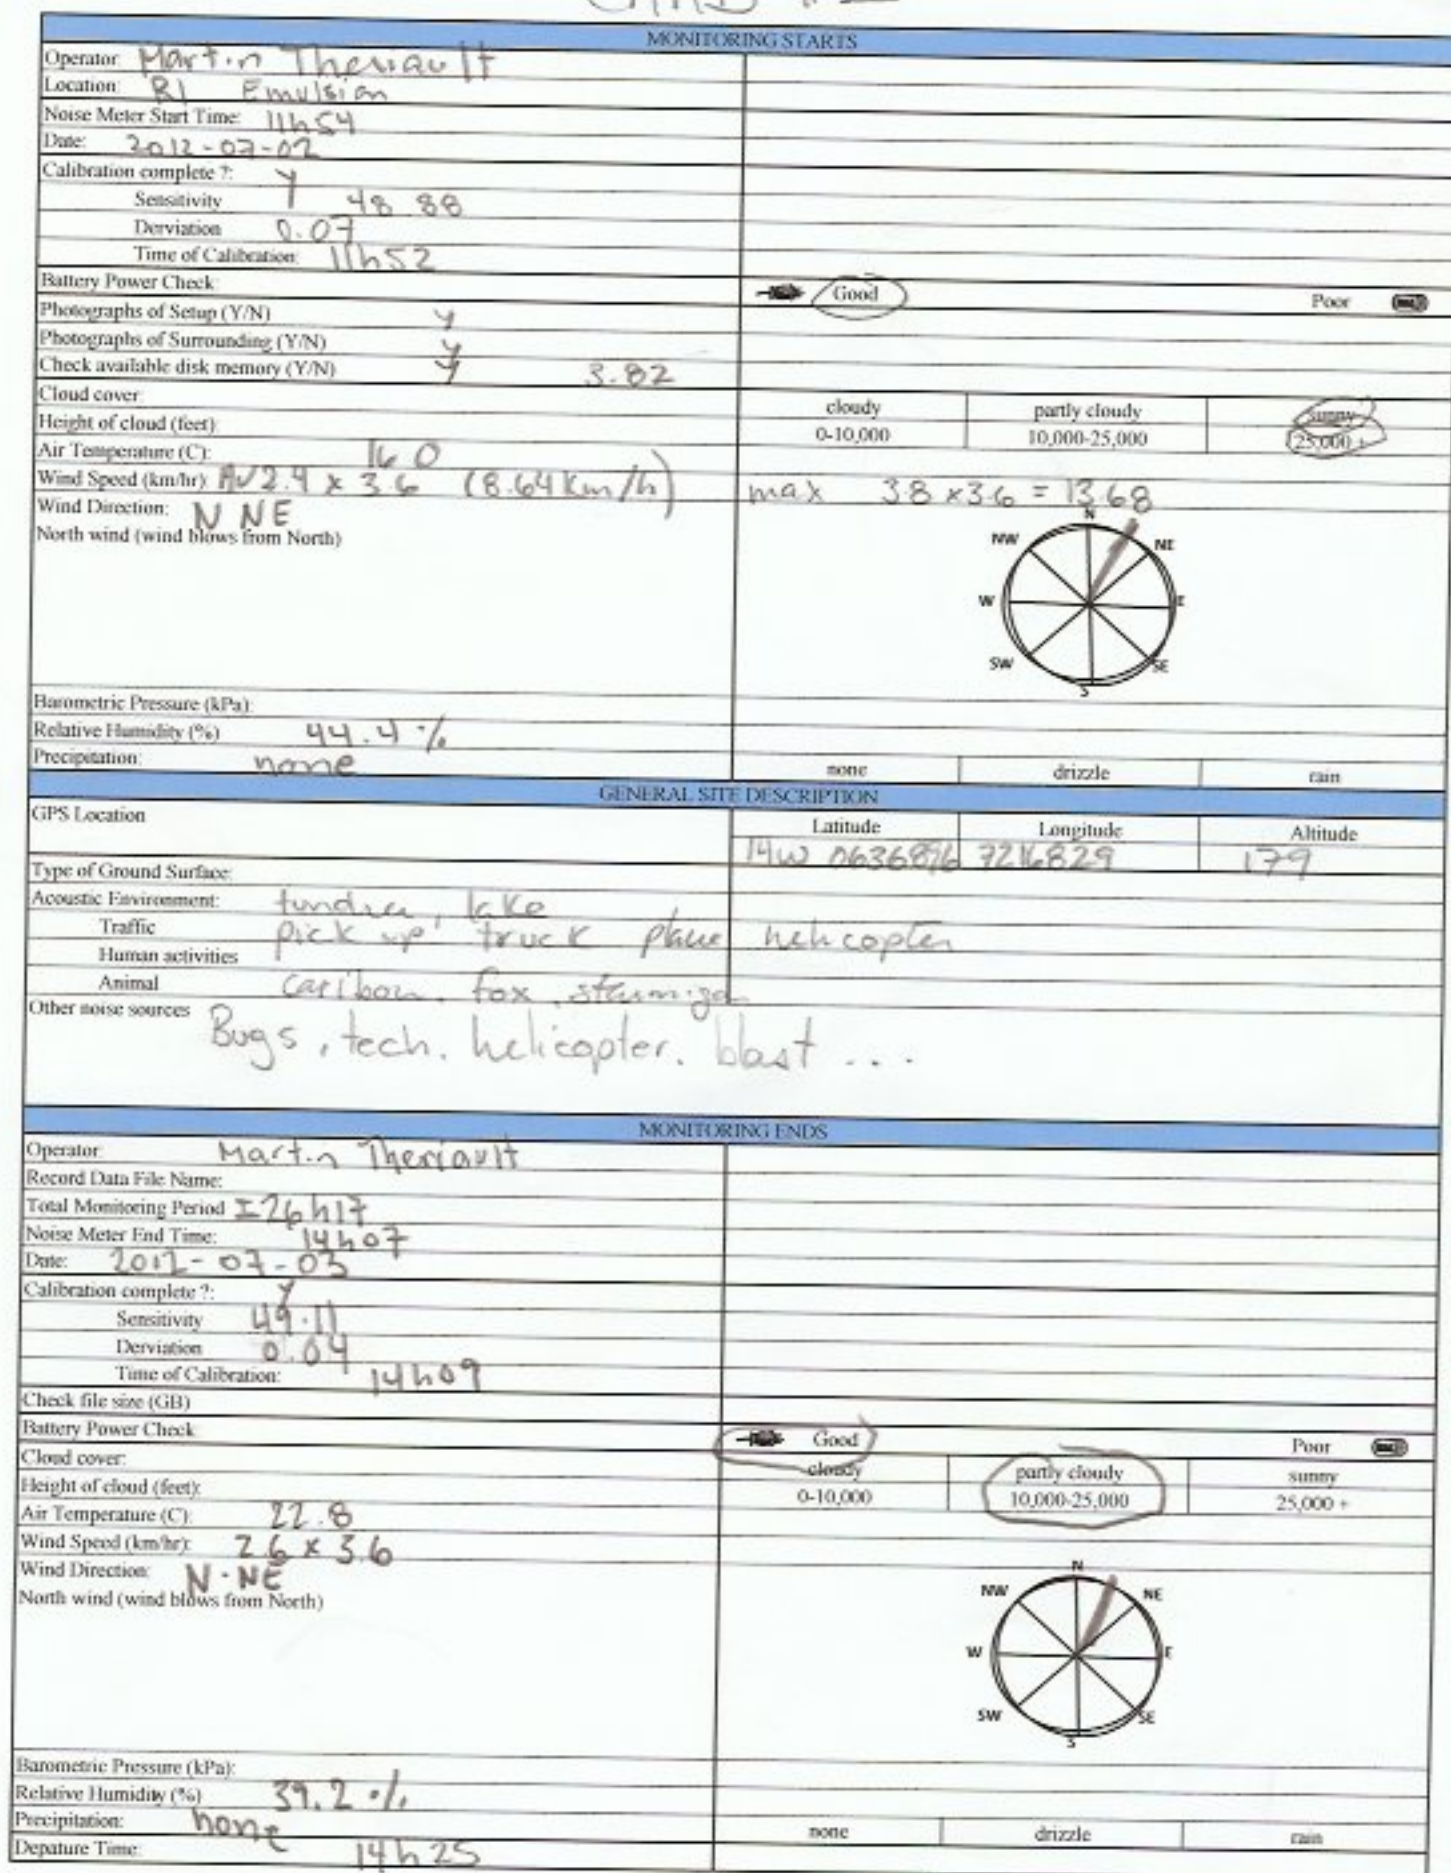 MONITORING STARTS
Operator: Martin Theriault
Location: R1 Emulsion
Noise Meter Start Time: 11h54
Date: 2012-07-02
Calibration complete ?: Y
Sensitivity 48.88
Derviation 0.07
Time of Calibration: 11h52
Battery Power Check: Good Poor
Photographs of Setup (Y/N) y
Photographs of Surrounding (Y/N) y
Check available disk memory (Y/N) y 3.82
Cloud cover: cloudy partly cloudy sunny
Height of cloud (feet) 0-10,000 10,000-25,000 25,000 +
Air Temperature (C): 16.0
Wind Speed (km/hr): AV 2.4 x 3.6 (8.64 Km/h) max 3.8 x3.6 = 13.68
Wind Direction: N NE
North wind (wind blows from North)
N
NW NE
W E
SW SE
S
Barometric Pressure (kPa):
Relative Humidity (%) 44.4 %
Precipitation: none none drizzle rain
GENERAL SITE DESCRIPTION
GPS Location Latitude Longitude Altitude
14W 0636896 7216829 179
Type of Ground Surface:
Acoustic Environment: tundra, lake
Traffic pick up truck plane helicopter
Human activities
Animal caribou, fox,
Other noise sources Bugs, tech. helicopter. blast ...
MONITORING ENDS
Operator: Martin Theriault
Record Data File Name:
Total Monitoring Period ± 26h17
Noise Meter End Time: 14h07
Date: 2012-07-03
Calibration complete ?: Y
Sensitivity 49.11
Derviation 0.04
Time of Calibration: 14h09
Check file size (GB)
Battery Power Check Good Poor
Cloud cover: cloudy partly cloudy sunny
Height of cloud (feet): 0-10,000 10,000-25,000 25,000 +
Air Temperature (C): 22.8
Wind Speed (km/hr): 2.6 x 3.6
Wind Direction: N-NE
North wind (wind blows from North)
N
NW NE
W E
SW SE
S
Barometric Pressure (kPa):
Relative Humidity (%) 39.2 %
Precipitation: none none drizzle rain
Depature Time: 14h25